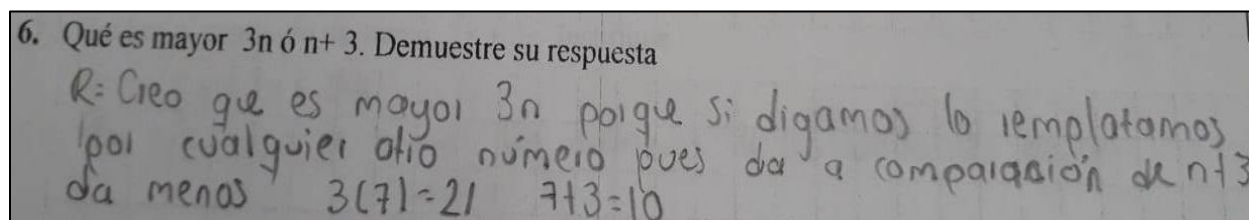 6. Qué es mayor 3n ó n+ 3. Demuestre su respuesta
R: Creo que es mayor 3n porque si digamos lo remplatamos
por cualquier otro número pues da a comparasión de n+3
da menos 3(7)=21 7+3=10